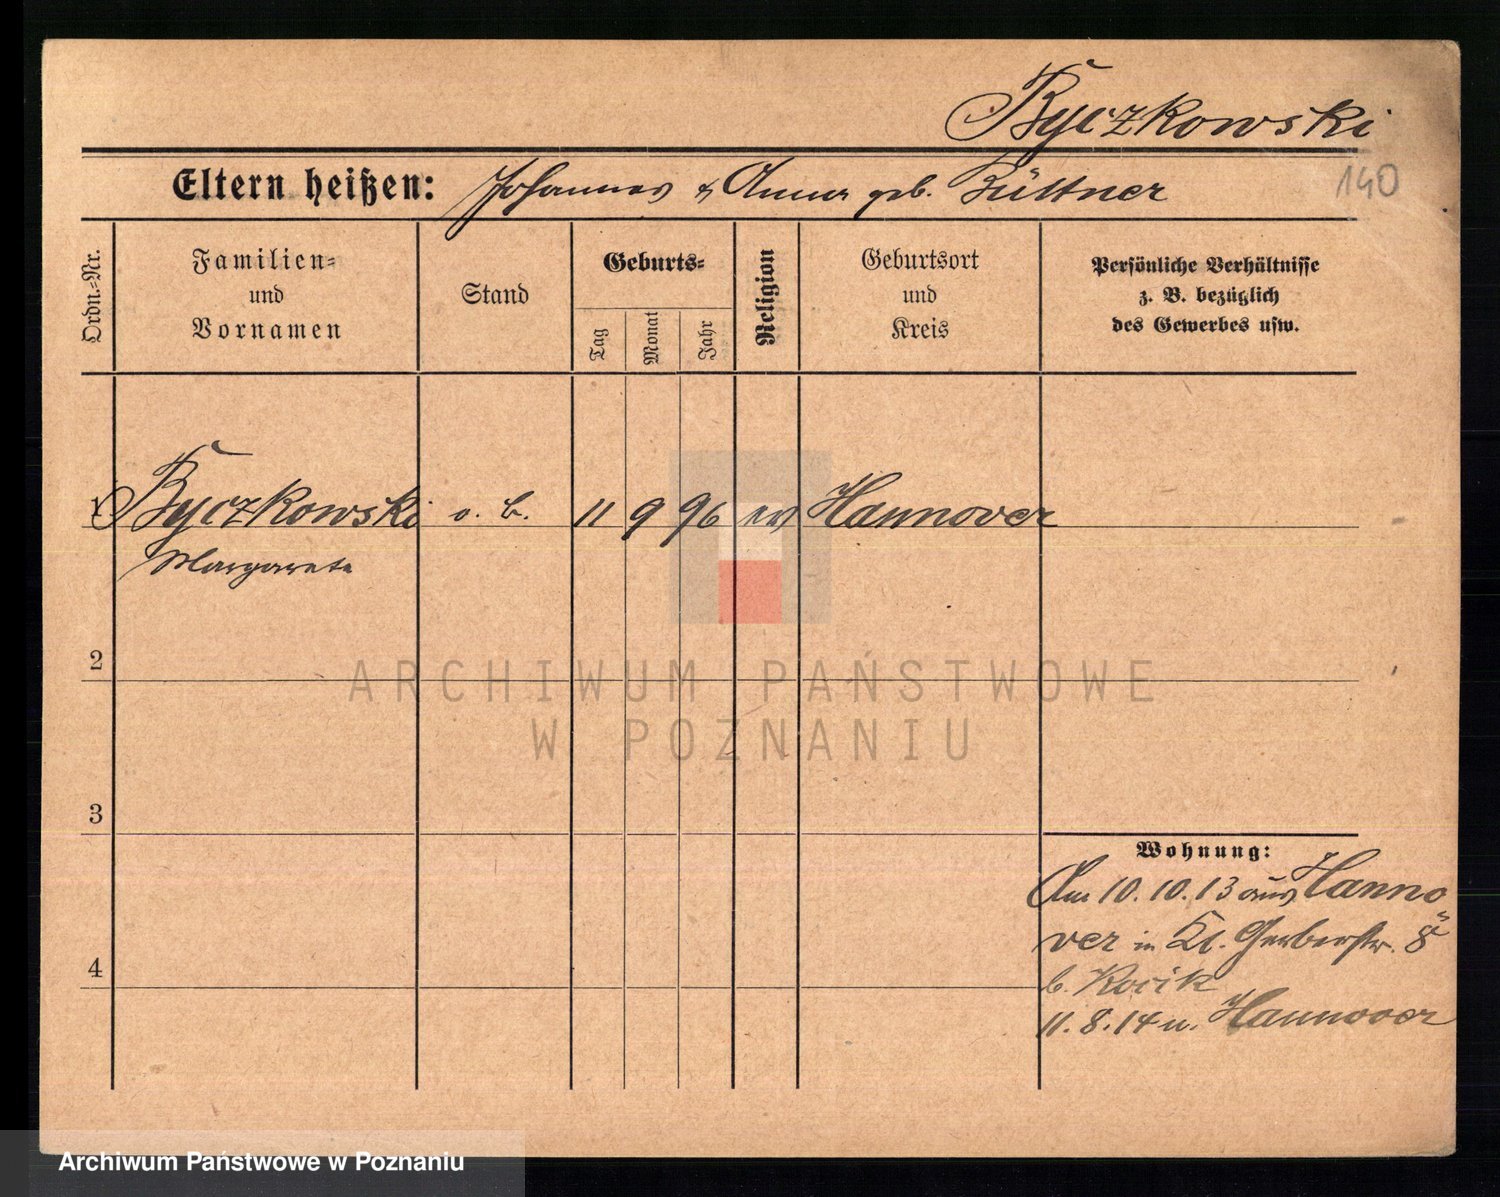 Byczkowski
140
Eltern heißen: Johannes & Anna geb. Büttner
Ordn.-Nr.
Familien-
und
Vornamen
Stand
Geburts-
Tag
Monat
Jahr
Religion
Geburtsort
und
Kreis
Persönliche Verhältnisse
z. B. bezüglich
des Gewerbes usw.
1 Byczkowski o. B. 11 9 96 ev Hannover
Margarete
2
ARCHIWUM PAŃSTWOWE
W POZNANIU
3
Wohnung:
Am 10. 10. 13 aus Hanno
ver in Kl. Gerberstr. 8
4
b. Kocik
11. 8. 14 n. Hannover
Archiwum Państwowe w Poznaniu